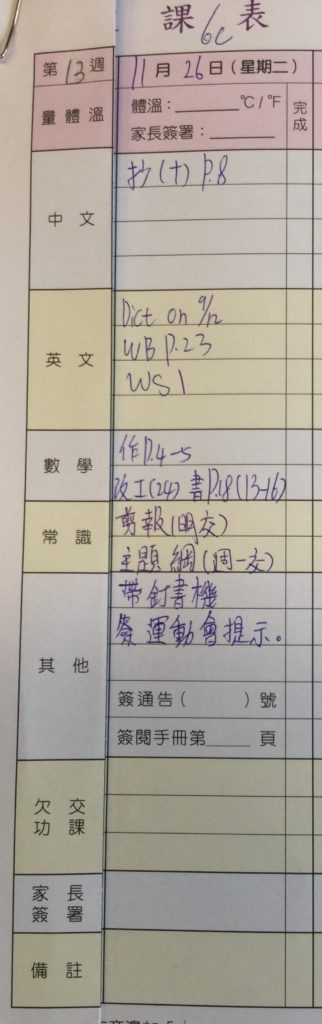 課 6C 表
第 13 週
11 月 26 日(星期二)
量體溫
體溫:______°C/°F
家長簽署:______
完成
中文
抄(十) P.8
英文
Dict on 9/12
WB P.23
WS 1
數學
作P.4-5
改工(24) 書P.18(13-16)
常識
剪報(明交)
主題網(周一交)
其他
帶釘書機
簽運動會提示。
簽通告( )號
簽閱手冊第____頁
欠交功課
家長簽署
備註